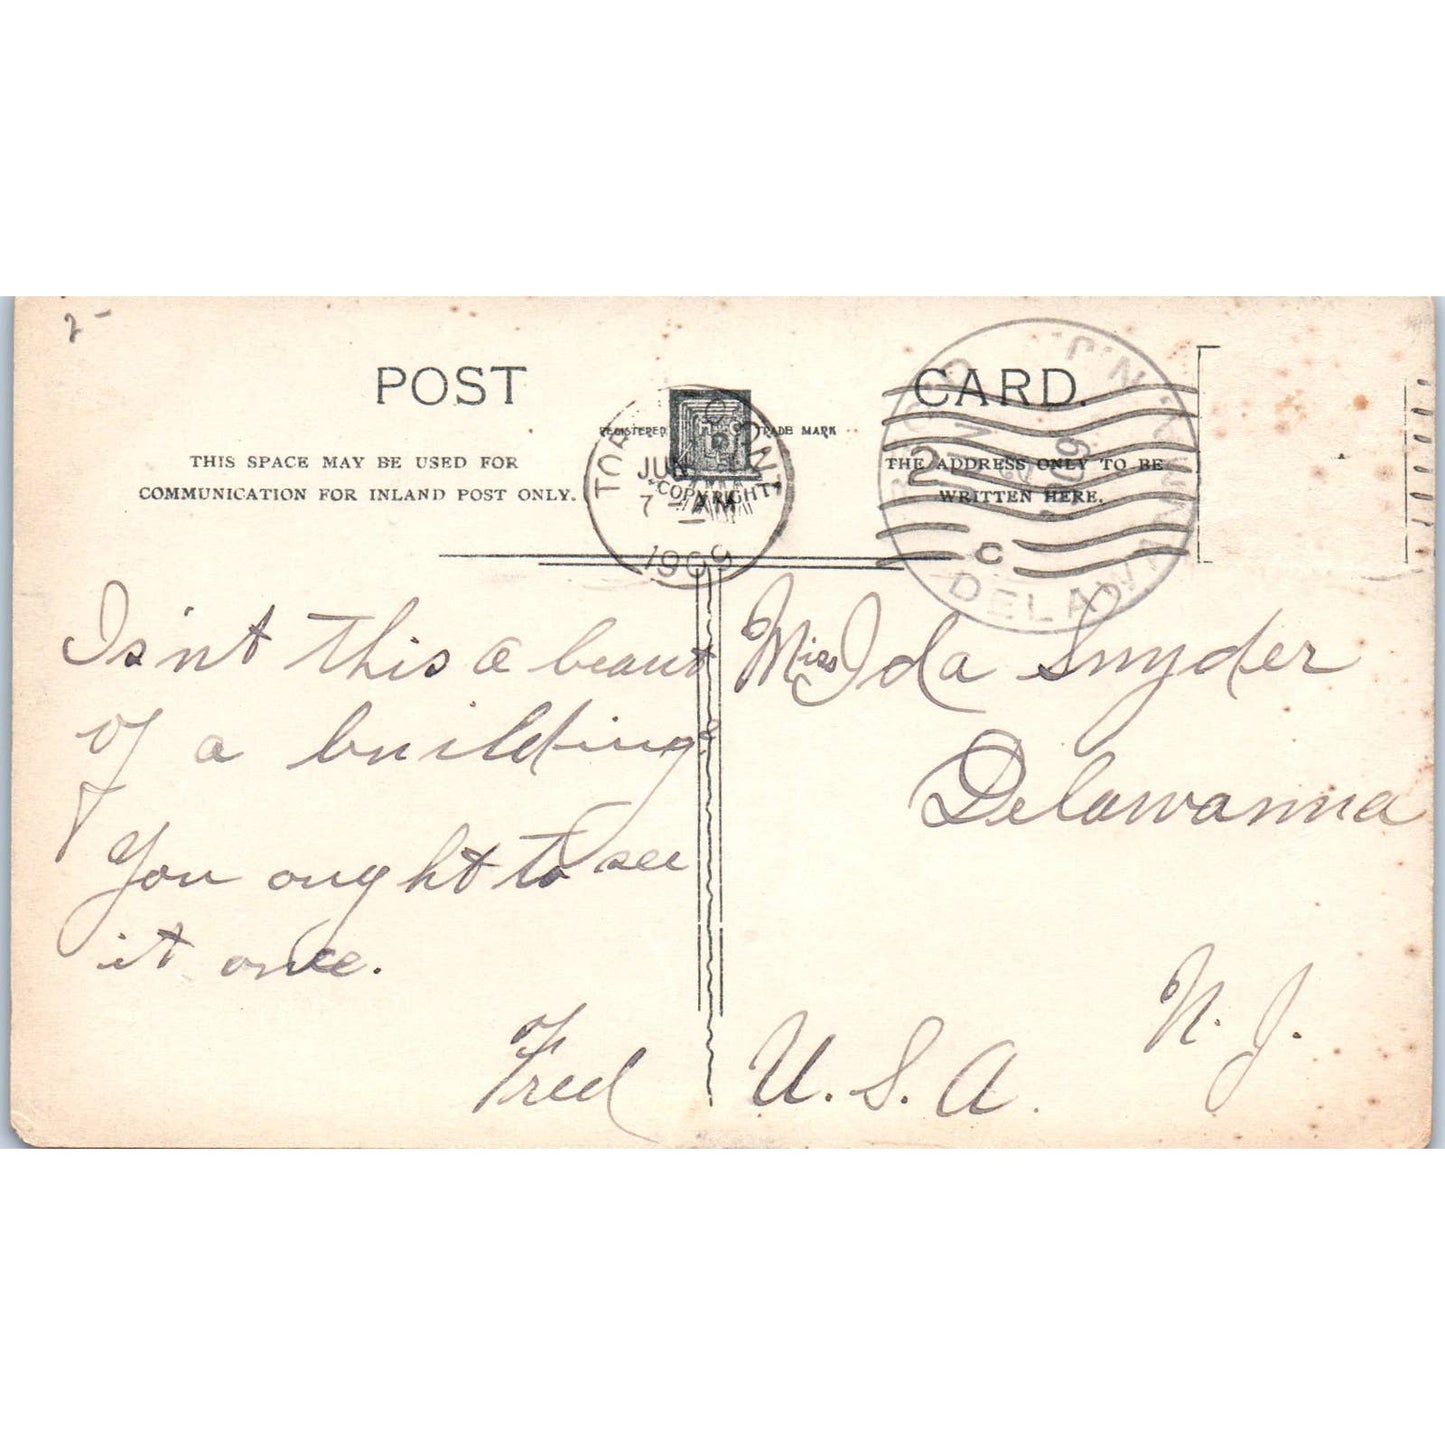 2-
POST CARD.
REGISTERED TRADE MARK
COPYRIGHT
THIS SPACE MAY BE USED FOR
COMMUNICATION FOR INLAND POST ONLY.
THE ADDRESS ONLY TO BE
WRITTEN HERE.
JUN
7
1909
REC'D
2
1909
C
DELAWANNA, N.J.
Isn't this a beaut
of a building?
You ought to see
it once.
Fred
Miss Ida Snyder
Delawanna
N. J.
U. S. A.